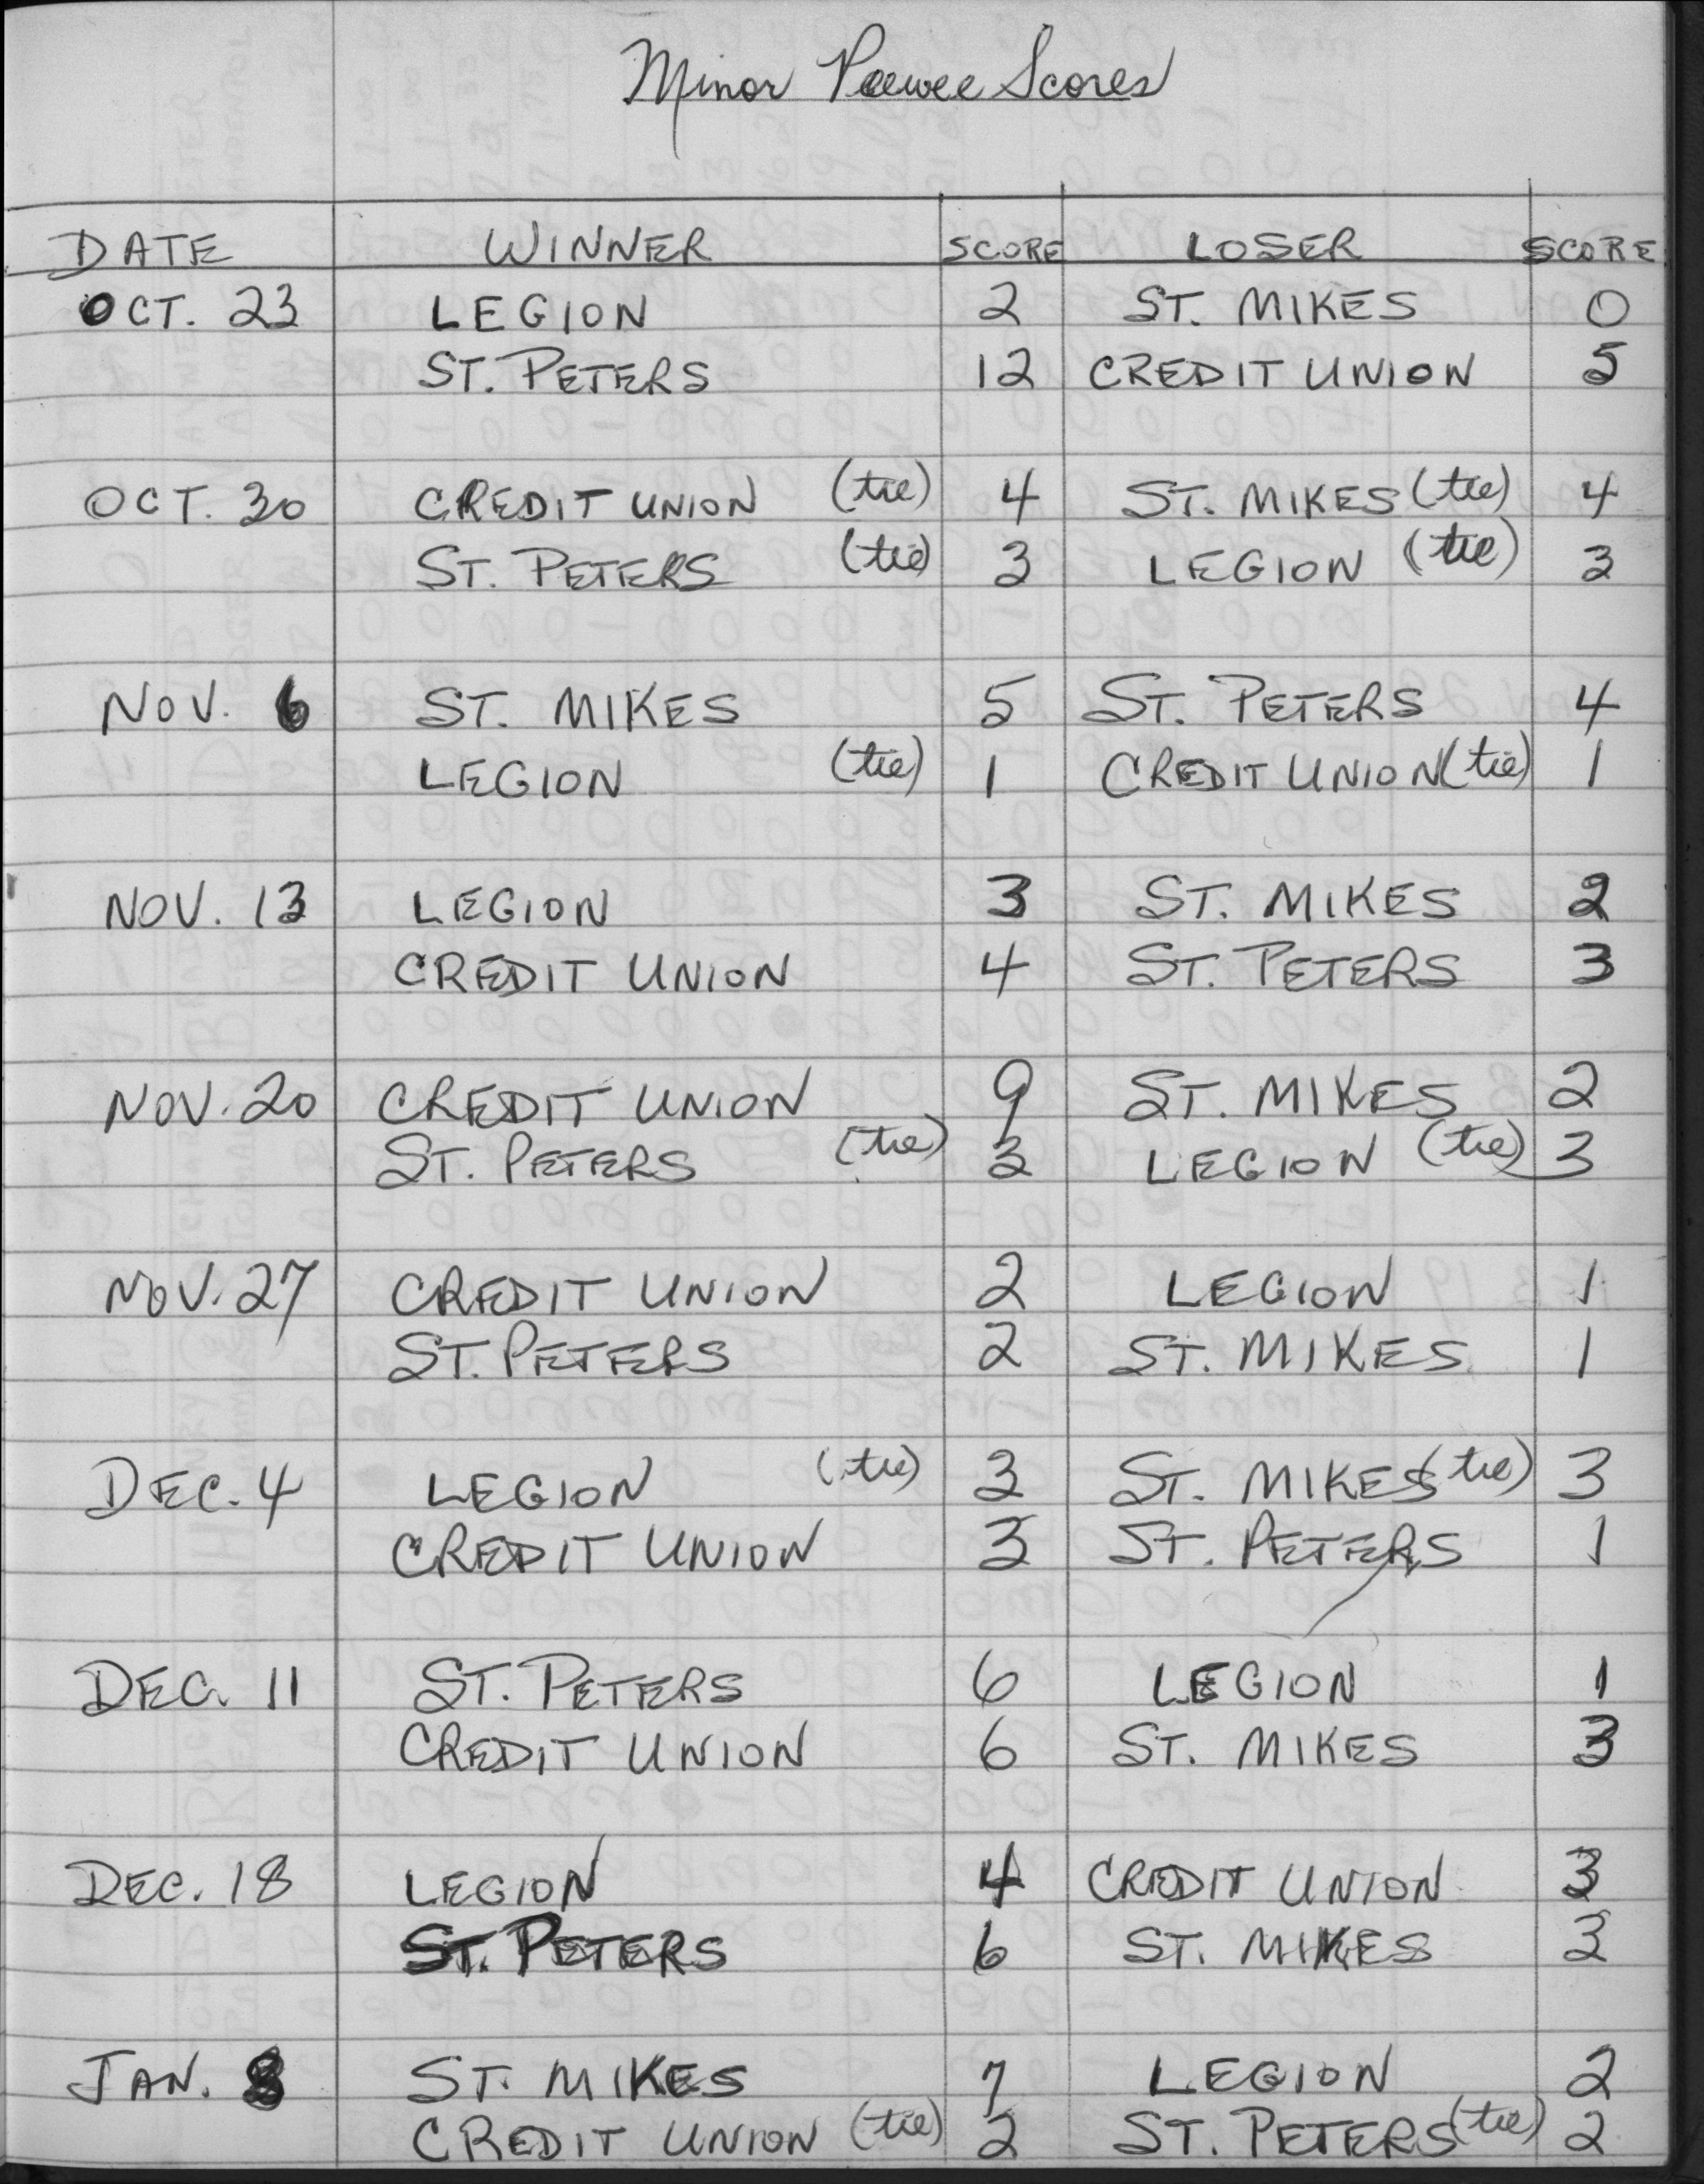 Minor Peewee Scores
DATE WINNER SCORE LOSER SCORE
OCT. 23 LEGION 2 ST. MIKES 0
ST. PETERS 12 CREDIT UNION 5
OCT. 30 CREDIT UNION (tie) 4 ST. MIKES (tie) 4
ST. PETERS (tie) 3 LEGION (tie) 3
NOV. 6 ST. MIKES 5 ST. PETERS 4
LEGION (tie) 1 CREDIT UNION (tie) 1
NOV. 13 LEGION 3 ST. MIKES 2
CREDIT UNION 4 ST. PETERS 3
NOV. 20 CREDIT UNION 9 ST. MIKES 2
ST. PETERS (tie) 3 LEGION (tie) 3
NOV. 27 CREDIT UNION 2 LEGION 1
ST. PETERS 2 ST. MIKES 1
DEC. 4 LEGION (tie) 3 ST. MIKES (tie) 3
CREDIT UNION 3 ST. PETERS 1
DEC. 11 ST. PETERS 6 LEGION 1
CREDIT UNION 6 ST. MIKES 3
DEC. 18 LEGION 4 CREDIT UNION 3
ST. PETERS 6 ST. MIKES 3
JAN. 8 ST. MIKES 7 LEGION 2
CREDIT UNION (tie) 2 ST. PETERS (tie) 2